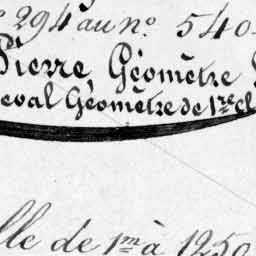 294 au nº. 540
Pierre Géomètre
eval Géomètre de 1re cl
lle de 1m à 1250